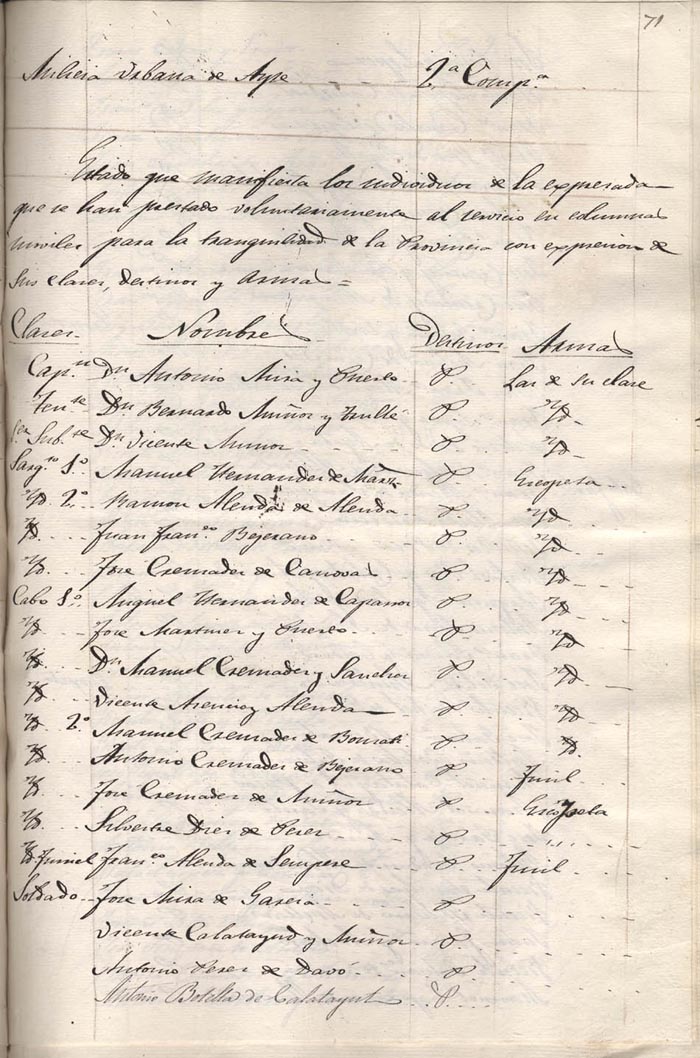 71
Milicia Urbana de Aspe 2.ª Comp.ª
Estado que manifiesta los individuos de la expresada
que se han prestado voluntariamente al servicio en columnas
móviles para la tranquilidad de la Provincia con expresion de
sus clases, destinos y armas =
Clases Nombres Destinos Armas
Cap.n Dn Antonio Mira y Puerto P. Las de su clase
Ten.te Dn Bernardo Muñoz y P. Yd
Sub.te Dn Vicente Muñoz P. Yd
Sarg.to 1.º Manuel Hernandez de Mart.z P. Escopeta
Yd 2.º Ramon Alenda de Alenda P. Yd
Yd Juan Fran.co Bejerano P. Yd
Yd Jose Cremades de Canovas P. Yd
Cabo 1.º Miguel Hernandez de Caparros P. Yd
Yd Jose Martinez y Puerto P. Yd
Yd Dn Manuel Cremades y Sanchez P. Yd
Yd Vicente Asencio y Alenda P. Yd
Yd 2.º Manuel Cremades de P. Yd
Yd Antonio Cremades de Bejerano P. Fusil
Yd Jose Cremades de Muñoz P. Escopeta
Yd Silvestre Diez de Perez P.
Yd Fran.co Alenda de Sempere P. Fusil
Soldado Jose Mira de Garcia P.
Vicente Calatayud y Muñoz P.
Antonio Perez de Davó P.
Antonio Botella de Calatayut P.